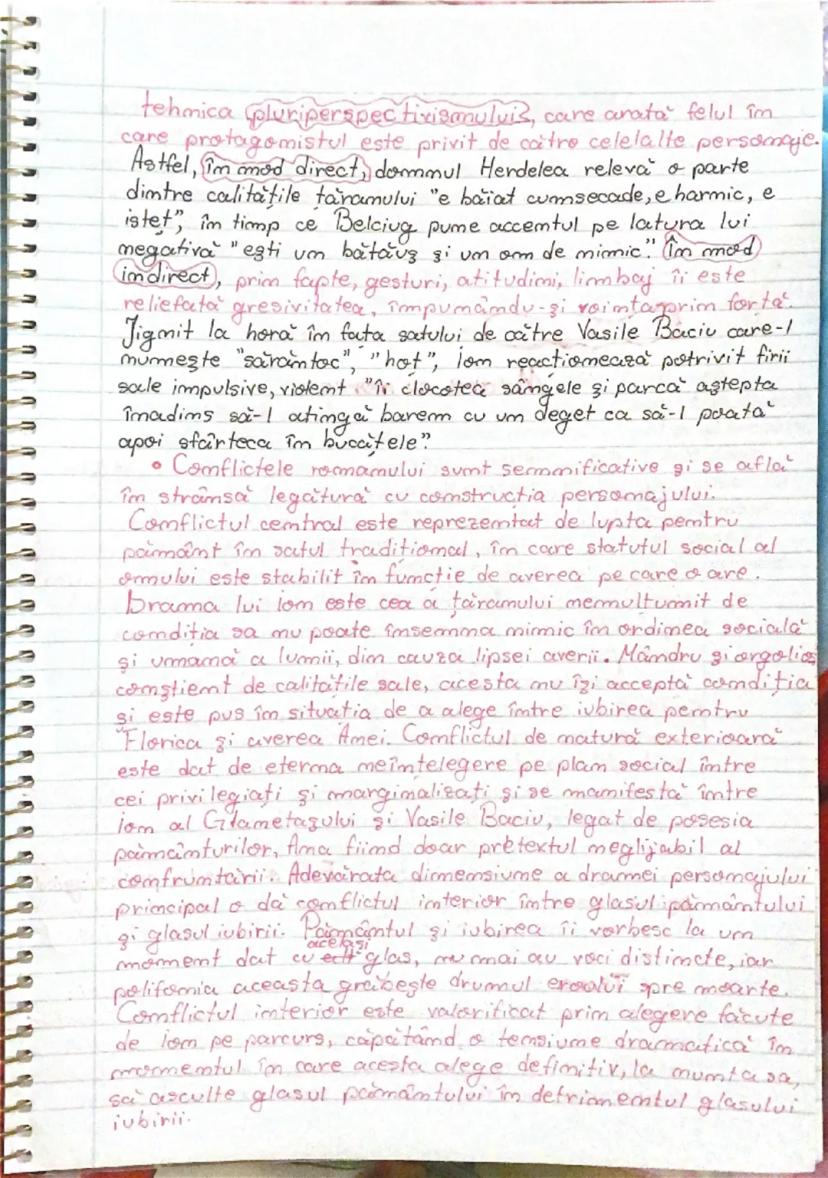 tehnica pluriperspectivismului, care arată felul în
care protagonistul este privit de către celelalte personaje.
Astfel, în mod direct, domnul Herdelea relevă o parte
dintre calitățile țăranului "e băiat cumsecade, e harnic, e
isteț", în timp ce Belciug pune accentul pe latura lui
negativă "ești un bătăuș și un om de nimic". În mod
indirect, prin fapte, gesturi, atitudini, limbaj îi este
reliefată gresivitatea, impunându-și voința prin forță.
Jignit la horă în fața satului de către Vasile Baciu care-l
numește "sărăntoc", "hoț", Ion reacționează potrivit firii
sale impulsive, violent "îi clocotea sângele și parcă aștepta
înadins să-l atingă barem cu un deget ca să-l poată
apoi sfârteca în bucățele"
• Conflictele romanului sunt semnificative și se află
în strânsă legătură cu construcția personajului.
Conflictul central este reprezentat de lupta pentru
pământ în satul tradițional, în care statutul social al
omului este stabilit în funcție de averea pe care o are.
Drama lui Ion este cea a țăranului nemulțumit de
condiția sa nu poate însemna nimic în ordinea socială
și umană a lumii, din cauza lipsei averii. Mândru și orgolios
conștient de calitățile sale, acesta nu își acceptă condiția
și este pus în situația de a alege între iubirea pentru
Florica și averea Anei. Conflictul de natură exterioară
este dat de eterna neînțelegere pe plan social între
cei privilegiați și marginalizați și se manifestă între
Ion al Glanetașului și Vasile Baciu, legat de posesia
pământurilor, Ana fiind doar pretextul neglijabil al
confruntării. Adevărata dimensiune a dramei personajului
principal o dă conflictul interior între glasul pământului
și glasul iubirii. Pământul și iubirea îi vorbesc la un
moment dat cu același glas, nu mai au voci distincte, iar
polifonia aceasta grăbește drumul eroului spre moarte.
Conflictul interior este valorificat prin alegere făcute
de Ion pe parcurs, căpătând o tensiune dramatică în
momentul în care acesta alege definitiv, la nunta sa,
să asculte glasul pământului în detrimentul glasului
iubirii.